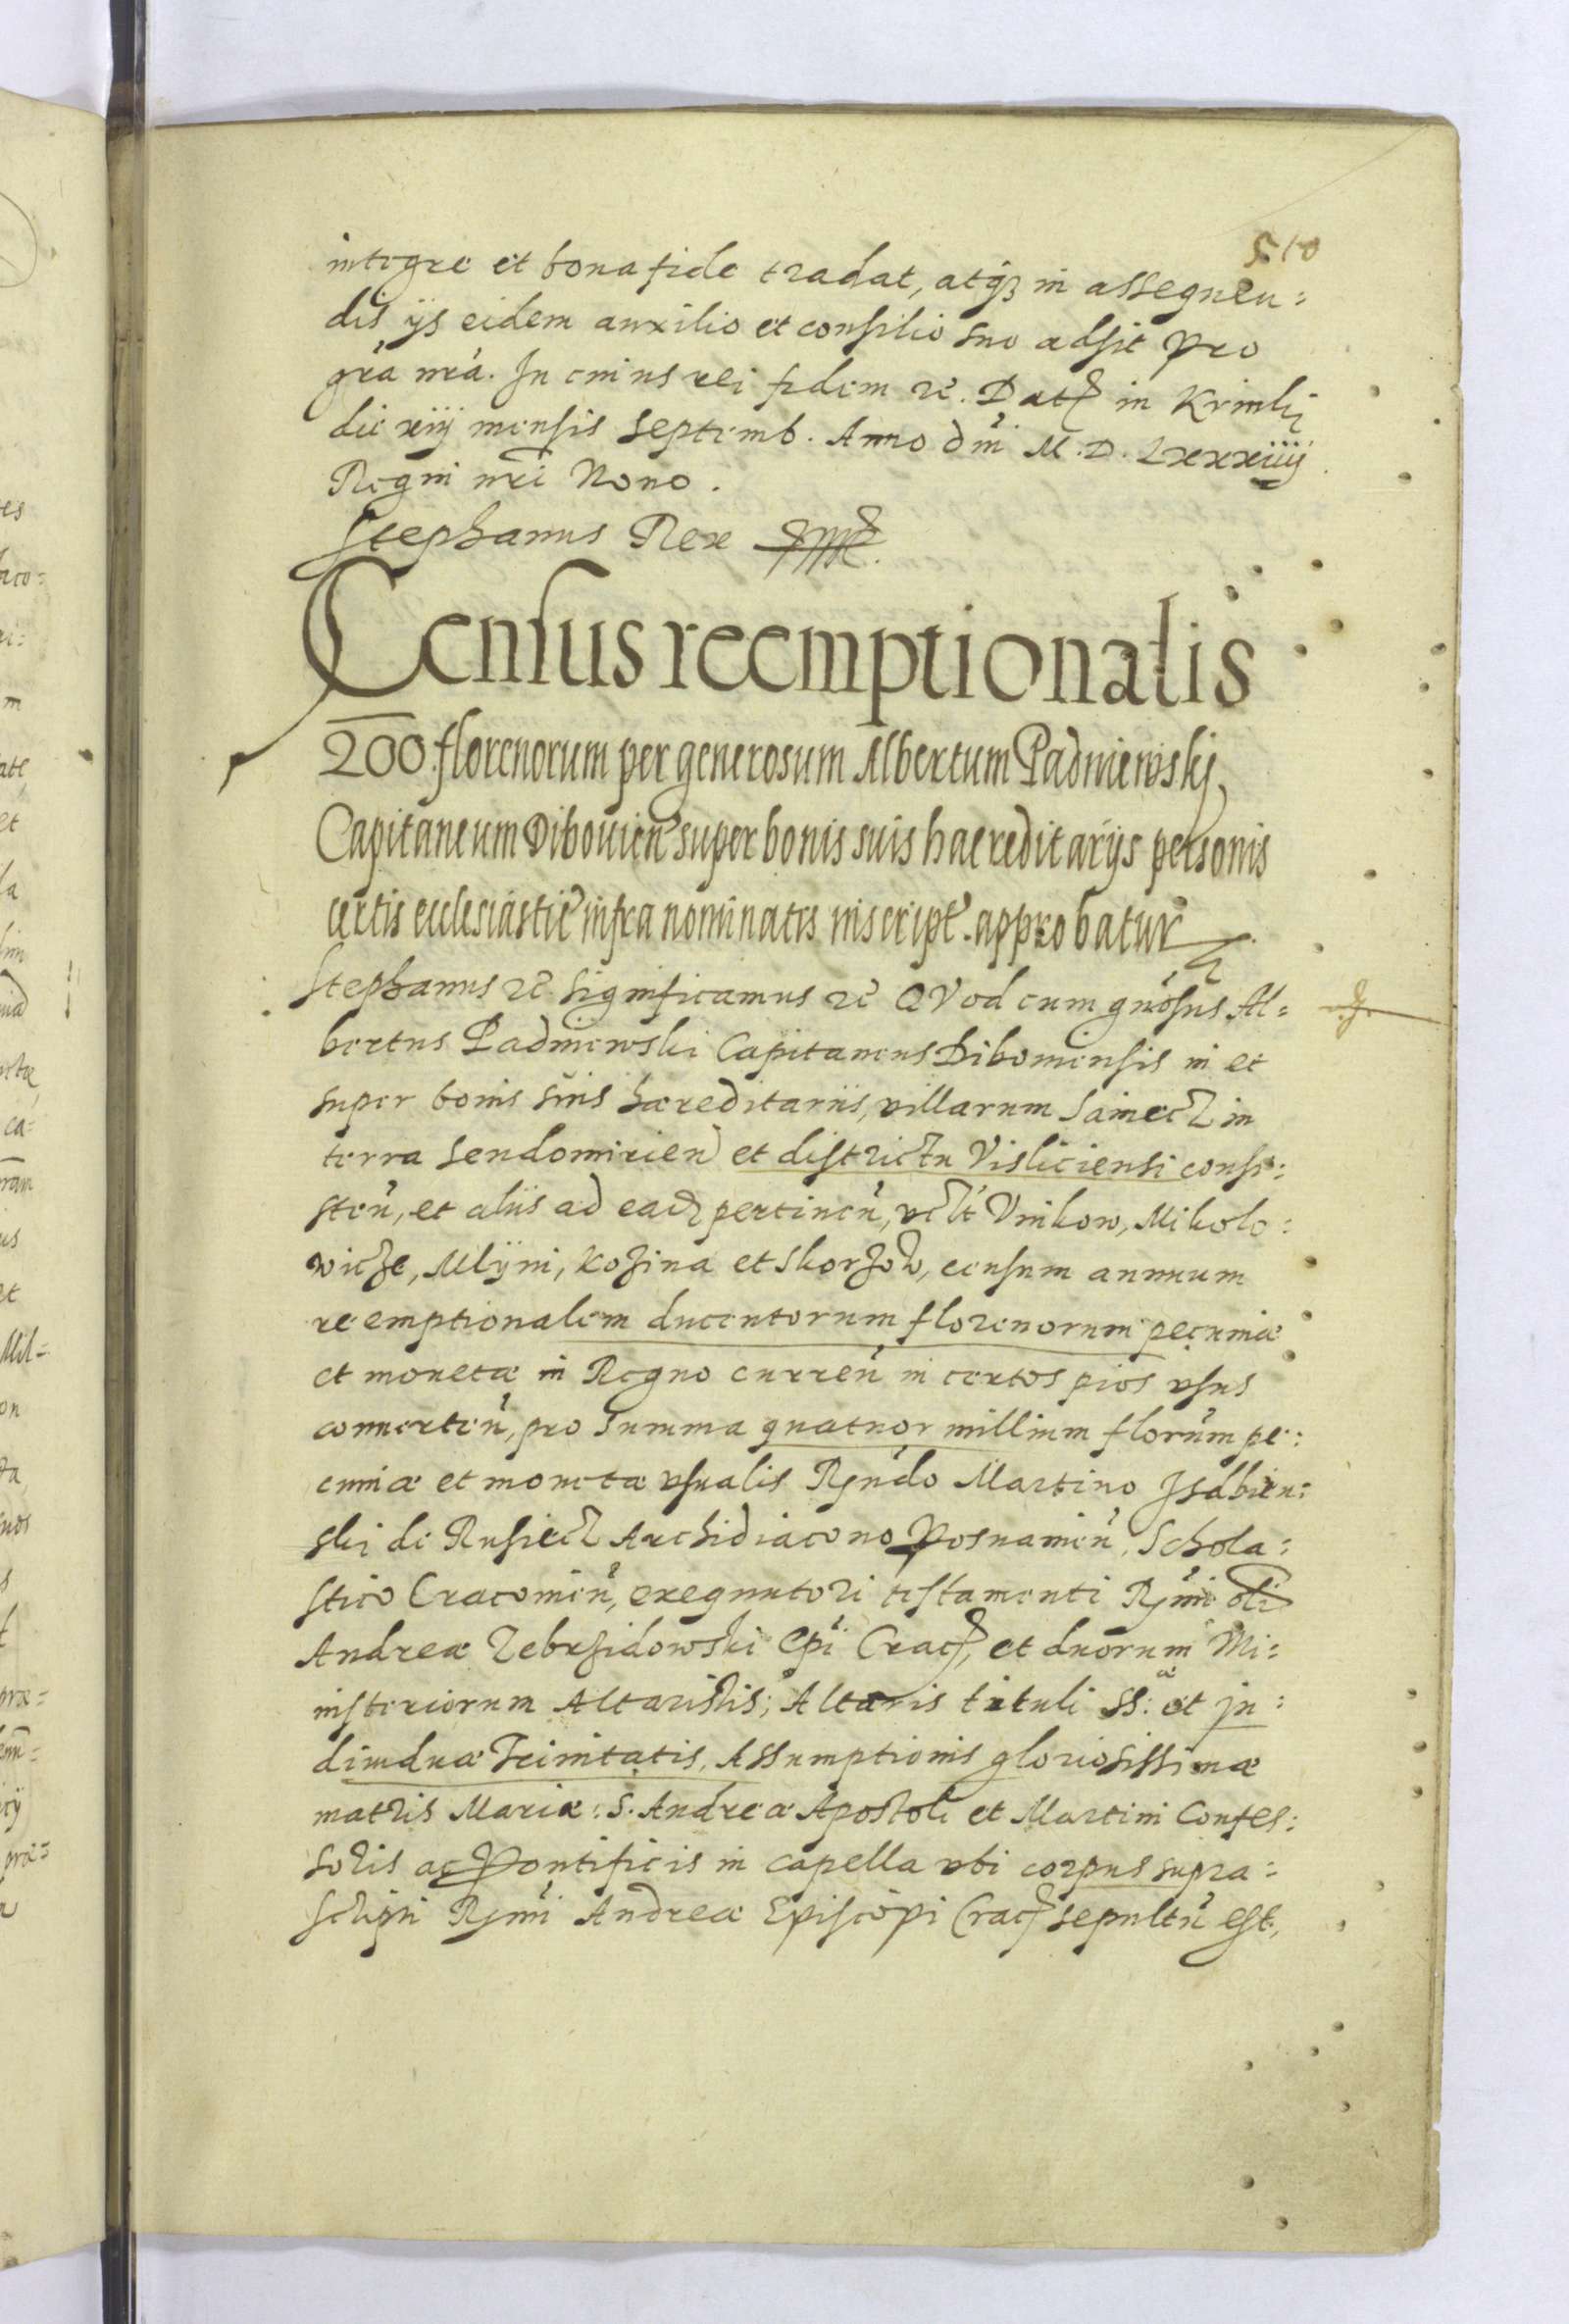 510
integre et bona fide tradat, atqȝ in assequen:
dis ijs eidem auxilio et consilio suo adsit pro
gra nra. In cuius rei fidem ꝛc. Dat in Krinki
die xiij mensis Septemb. Anno dni M.D.Lxxxiiij.
Regni nri Nono.
Stephanus Rex
Census reemptionalis
200. florenorum per generosum Albertum Padniewskj,
Capitaneum Dibouien super bonis suis haereditarijs personis
certis ecclesiastic infra nominatis inscript. approbatur
Stephanus ꝛc Significamus ꝛc QVod cum gnosus Al=
bertus Padniewski Capitaneus Dibouiensis in et
super bonis suis hæreditariis, villarum in
terra Sendomirien et districtu Visliciensi consi:
sten, et aliis ad ea pertinen, vclt Vnikow, Mikolo:
wicze, Mlyni, Kozina et Skorzow, censum annuum
reemptionalem ducentorum florenorum pecuniæ
et monetæ in Regno curren in certos pios vsus
conuerten, pro Summa quatuor millium florum pe:
cuniæ et monetæ vsualis Rndo Martino Isdbien:
ski de Rusiecz Archidiacono Posnanien, Schola:
stico Cracouien, exequutori testamenti Rmi oli
Andreæ Zebrzidowski Epi Crac, et duorum Mi:
nisteriorum Altaristis, Altaris tituli SS: æt in:
diuiduæ Trinitatis, Assumptionis gloriosissimæ
matris Mariæ: S. Andreæ Apostoli et Martini Confes:
soris ac Pontificis in capella vbi corpus supra:
scripti Rmi Andreæ Episcopi Crac sepultu est,